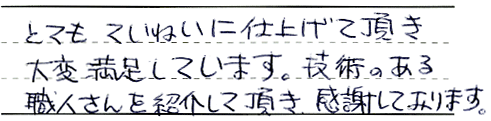 とてもていねいに仕上げて頂き
大変満足しています。技術のある
職人さんを紹介して頂き、感謝しております。